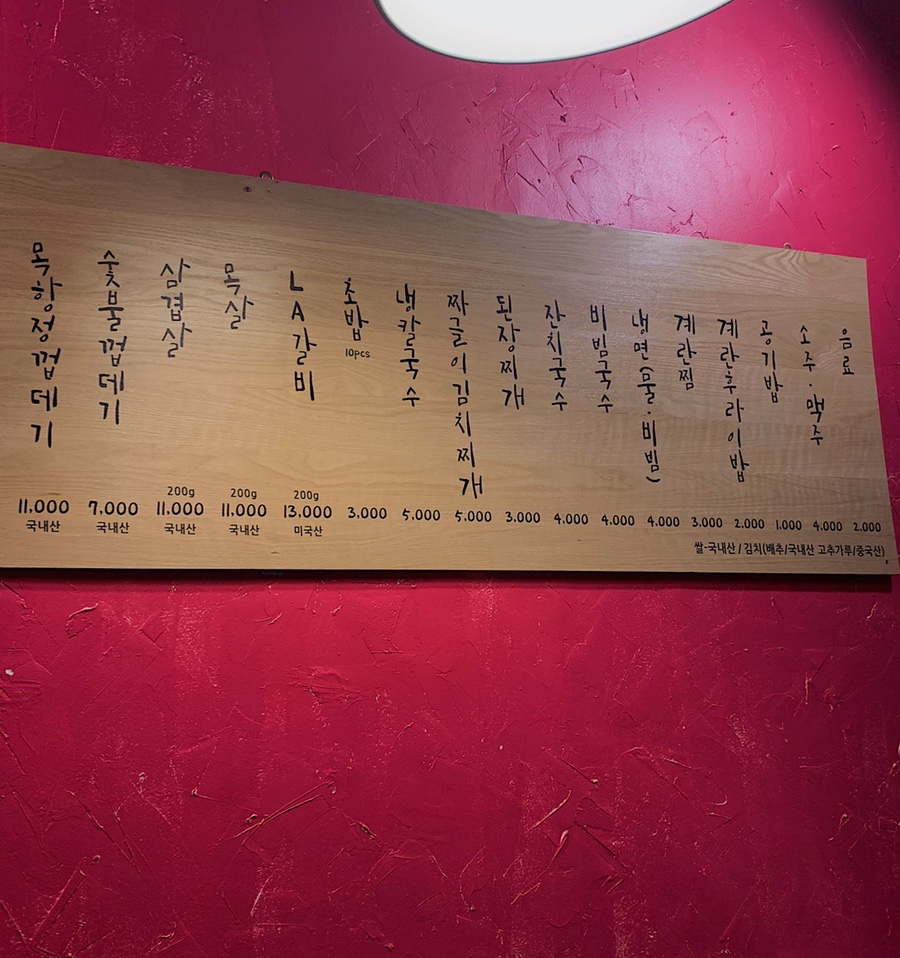 목항정껍데기 11,000 국내산
숯불껍데기 7,000 국내산
삼겹살 200g 11,000 국내산
목살 200g 11,000 국내산
LA갈비 200g 13,000 미국산
초밥 10pcs 3,000
냉칼국수 5,000
짜글이김치찌개 5,000
된장찌개 3,000
잔치국수 4,000
비빔국수 4,000
냉면(물·비빔) 4,000
계란찜 3,000
계란후라이밥 2,000
공기밥 1,000
소주·맥주 4,000
음료 2,000
쌀-국내산 / 김치(배추/국내산 고추가루/중국산)